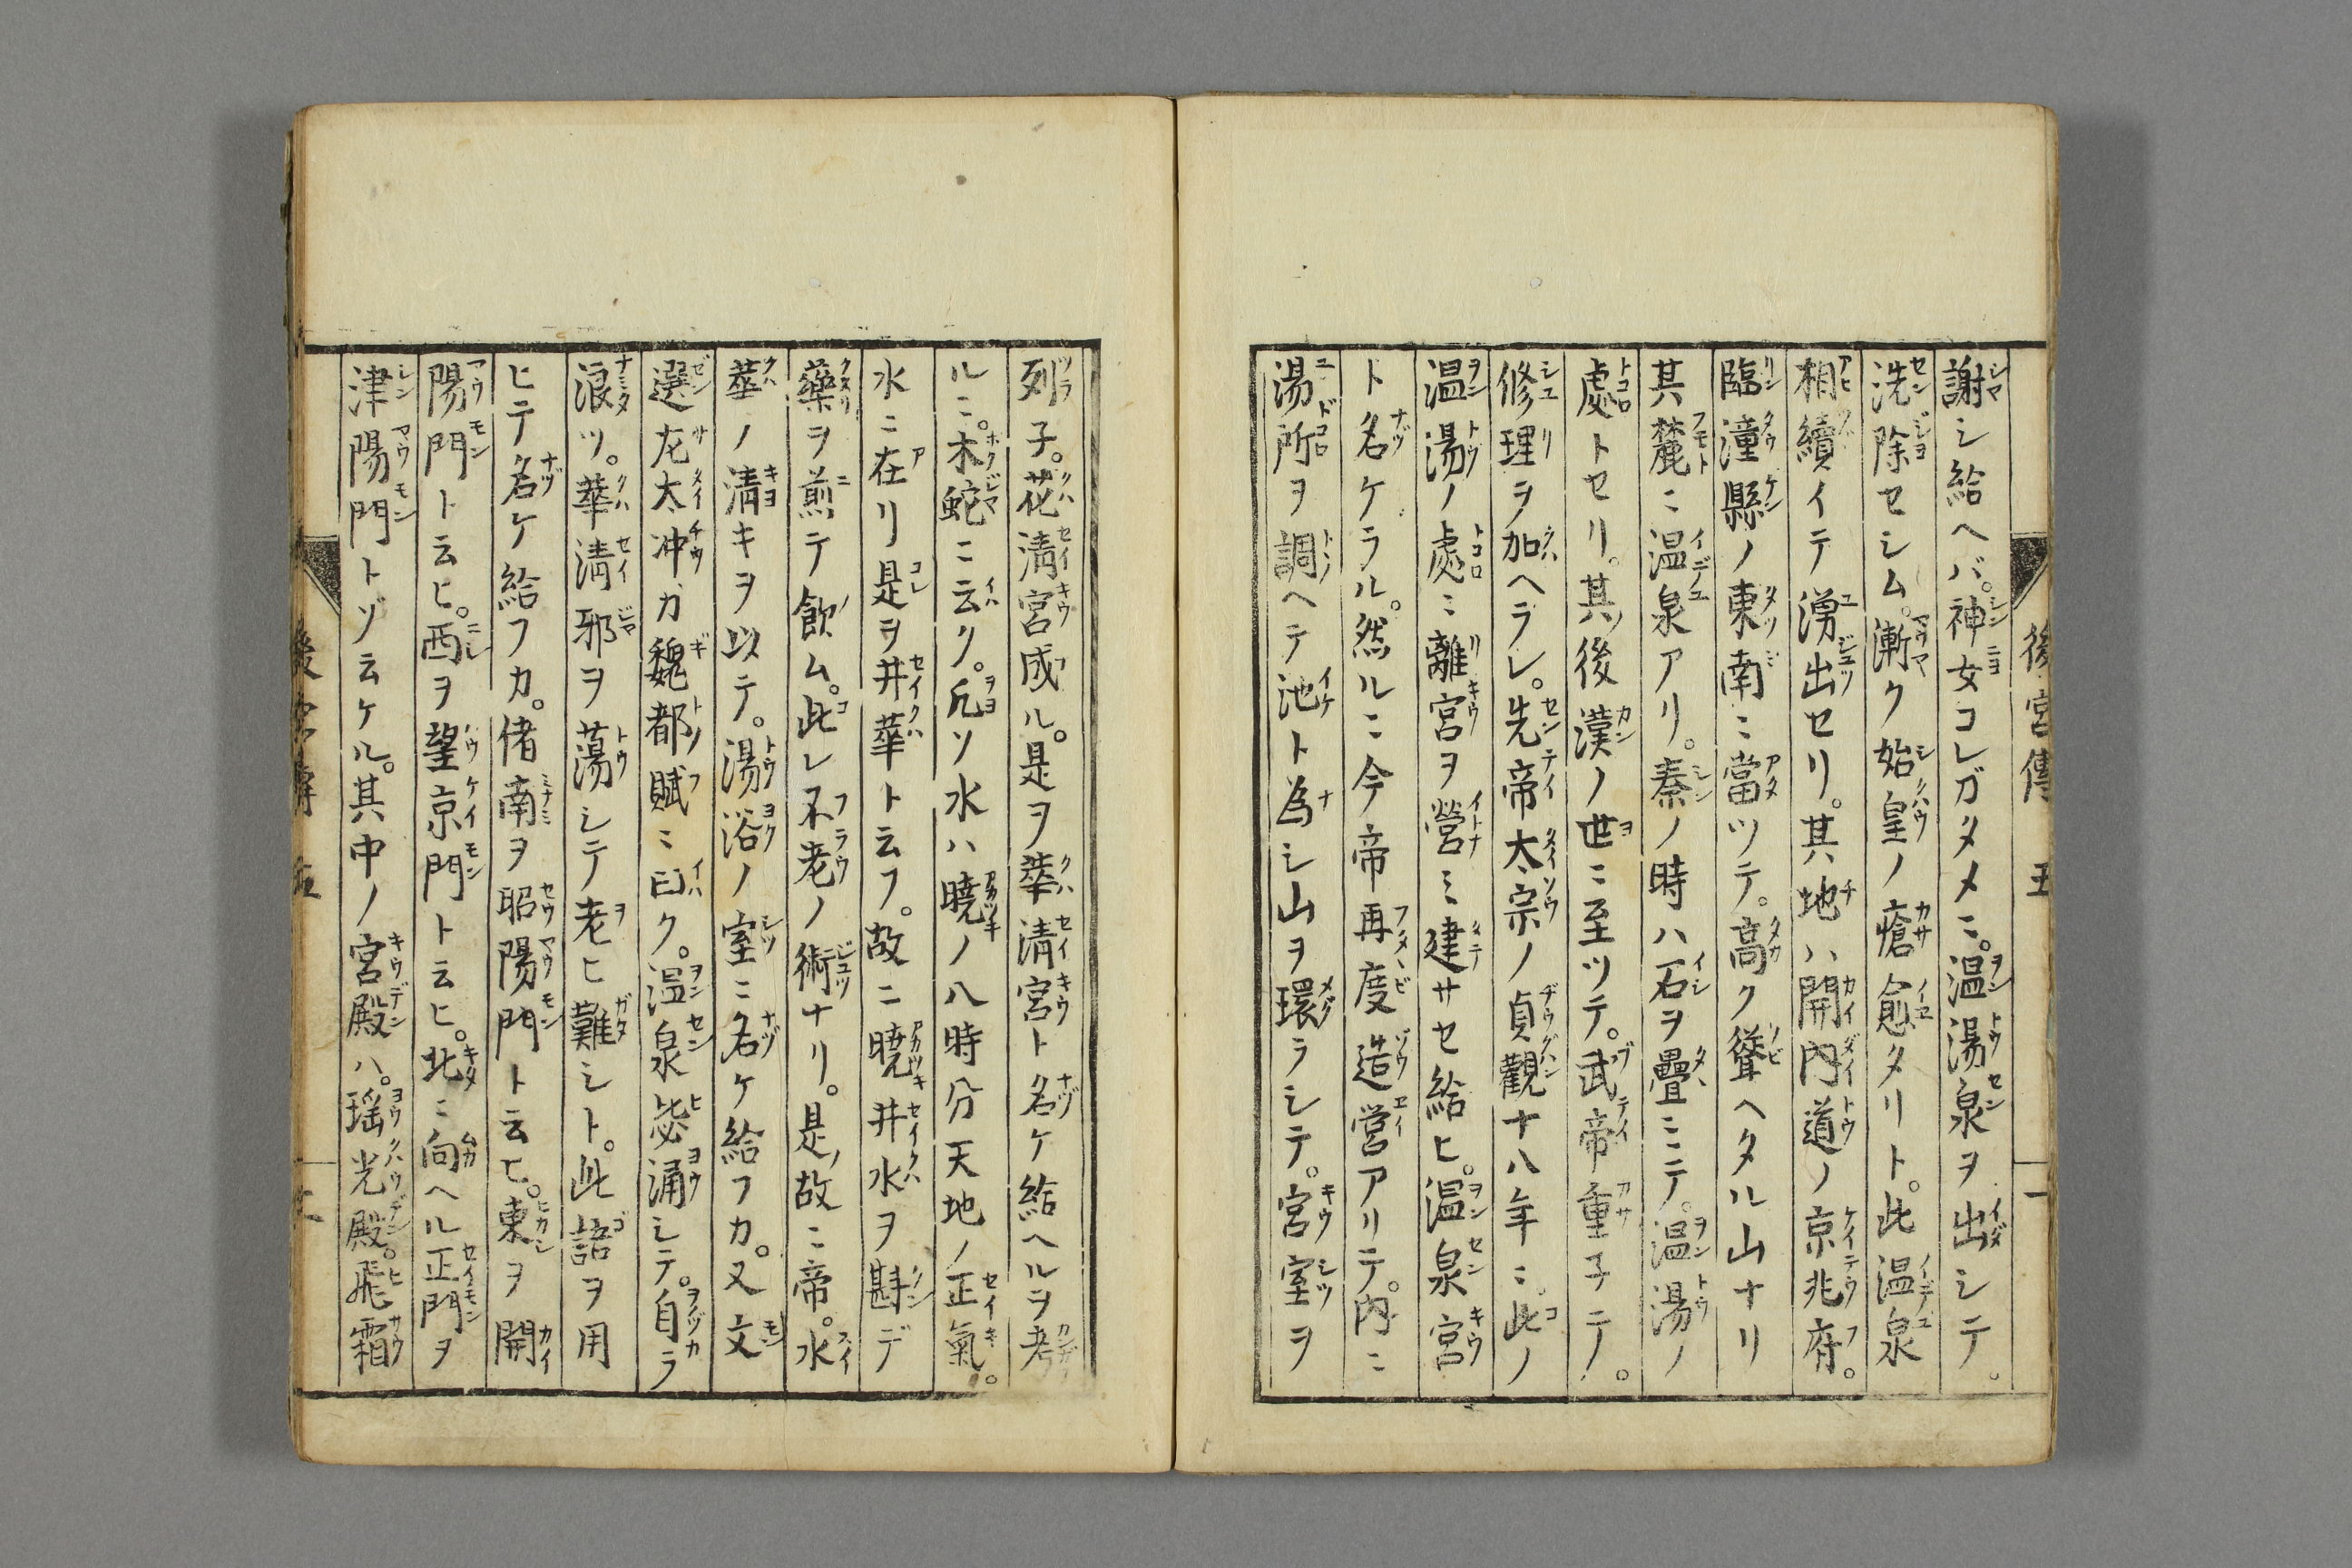 後宮傳 五 一
謝シ給ヘバ。神女コレガタメニ。温湯泉ヲ出シテ。
洗除セシム。漸ク始皇ノ瘡愈タリト。此温泉
相續イテ湧出セリ。其地ハ開内道ノ京兆府。
臨潼縣ノ東南ニ當ツテ。高ク聳ヘタル山ナリ
其麓ニ温泉アリ。秦ノ時ハ石ヲ疊ミテ。温湯ノ
處トセリ。其後漢ノ世ニ至ツテ。武帝重子テ。
修理ヲ加ヘラレ。先帝太宗ノ貞觀十八年ニ。此ノ
温湯ノ處ニ離宮ヲ營ミ建サセ給ヒ。温泉宮
ト名ケラル。然ルニ今帝再度造営アリテ。内ニ
湯所ヲ調ヘテ池ト為シ山ヲ環ラシテ。宮室ヲ
列子。花清宮成ル。是ヲ華清宮ト名ケ給ヘルヲ考
ルニ。木蛇ニ云ク。凡ソ水ハ曉ノ八時分天地ノ正氣。
水ニ在リ是ヲ井華ト云フ。故ニ曉井水ヲ斟デ
藥ヲ煎テ飲ム。此レ不老ノ術ナリ。是故ニ帝。水
華ノ清キヲ以テ。湯浴ノ室ニ名ケ給フカ。又文
選左太冲カ魏都賦ニ曰ク。温泉毖涌シテ。自ラ
浪ツ。華清邪ヲ蕩シテ老ヒ難シト。此語ヲ用
ヒテ名ケ給フカ。偖南ヲ昭陽門ト云ヒ。東ヲ開
陽門ト云ヒ。西ヲ望京門ト云ヒ。北ニ向ヘル正門ヲ
津陽門トゾ云ケル。其中ノ宮殿ハ。瑶光殿。飛霜
後宮傳 五